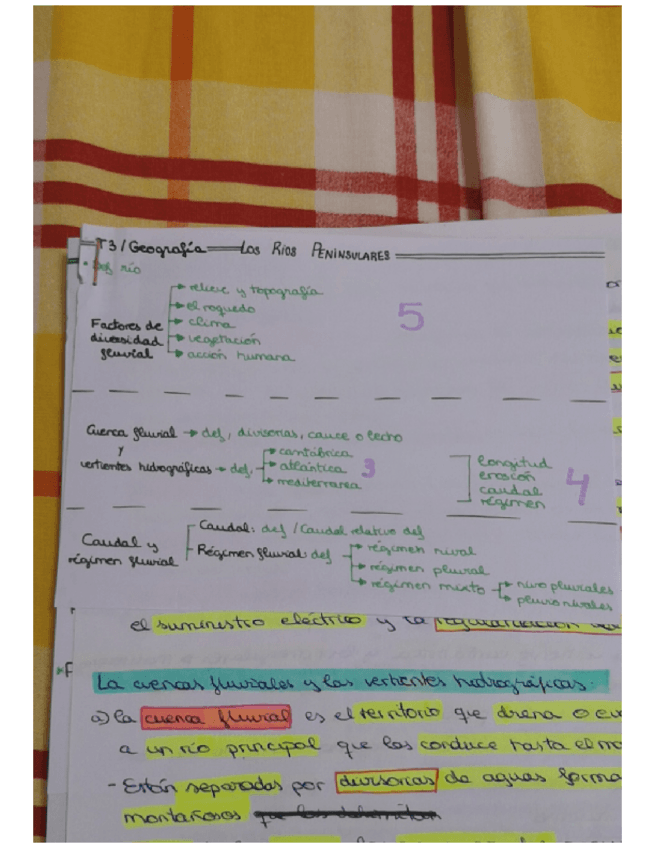 T3/Geografía Los Ríos PENINSULARES
Def río
Factores de diversidad fluvial
relieve y topografía
el roquedo
clima
vegetación
acción humana
5
Cuenca fluvial → def, divisorias, cauce o lecho
y
vertientes hidrográficas → def,
cantábrica
atlántica
mediterranea
3
longitud
erosión
caudal
régimen
4
Caudal y régimen fluvial
Caudal: def / Caudal relativo def
Régimen fluvial: def
régimen nival
régimen pluvial
régimen mixto
nivo pluviales
pluvio nivales
el suministro eléctrico y la regularización
La cuencas fluviales y las vertientes hidrográficas.
a) la cuenca fluvial es el territorio que drena o
a un río principal que las conduce hasta el
- Están separadas por divisorias de aguas
montañosos que las delimitan